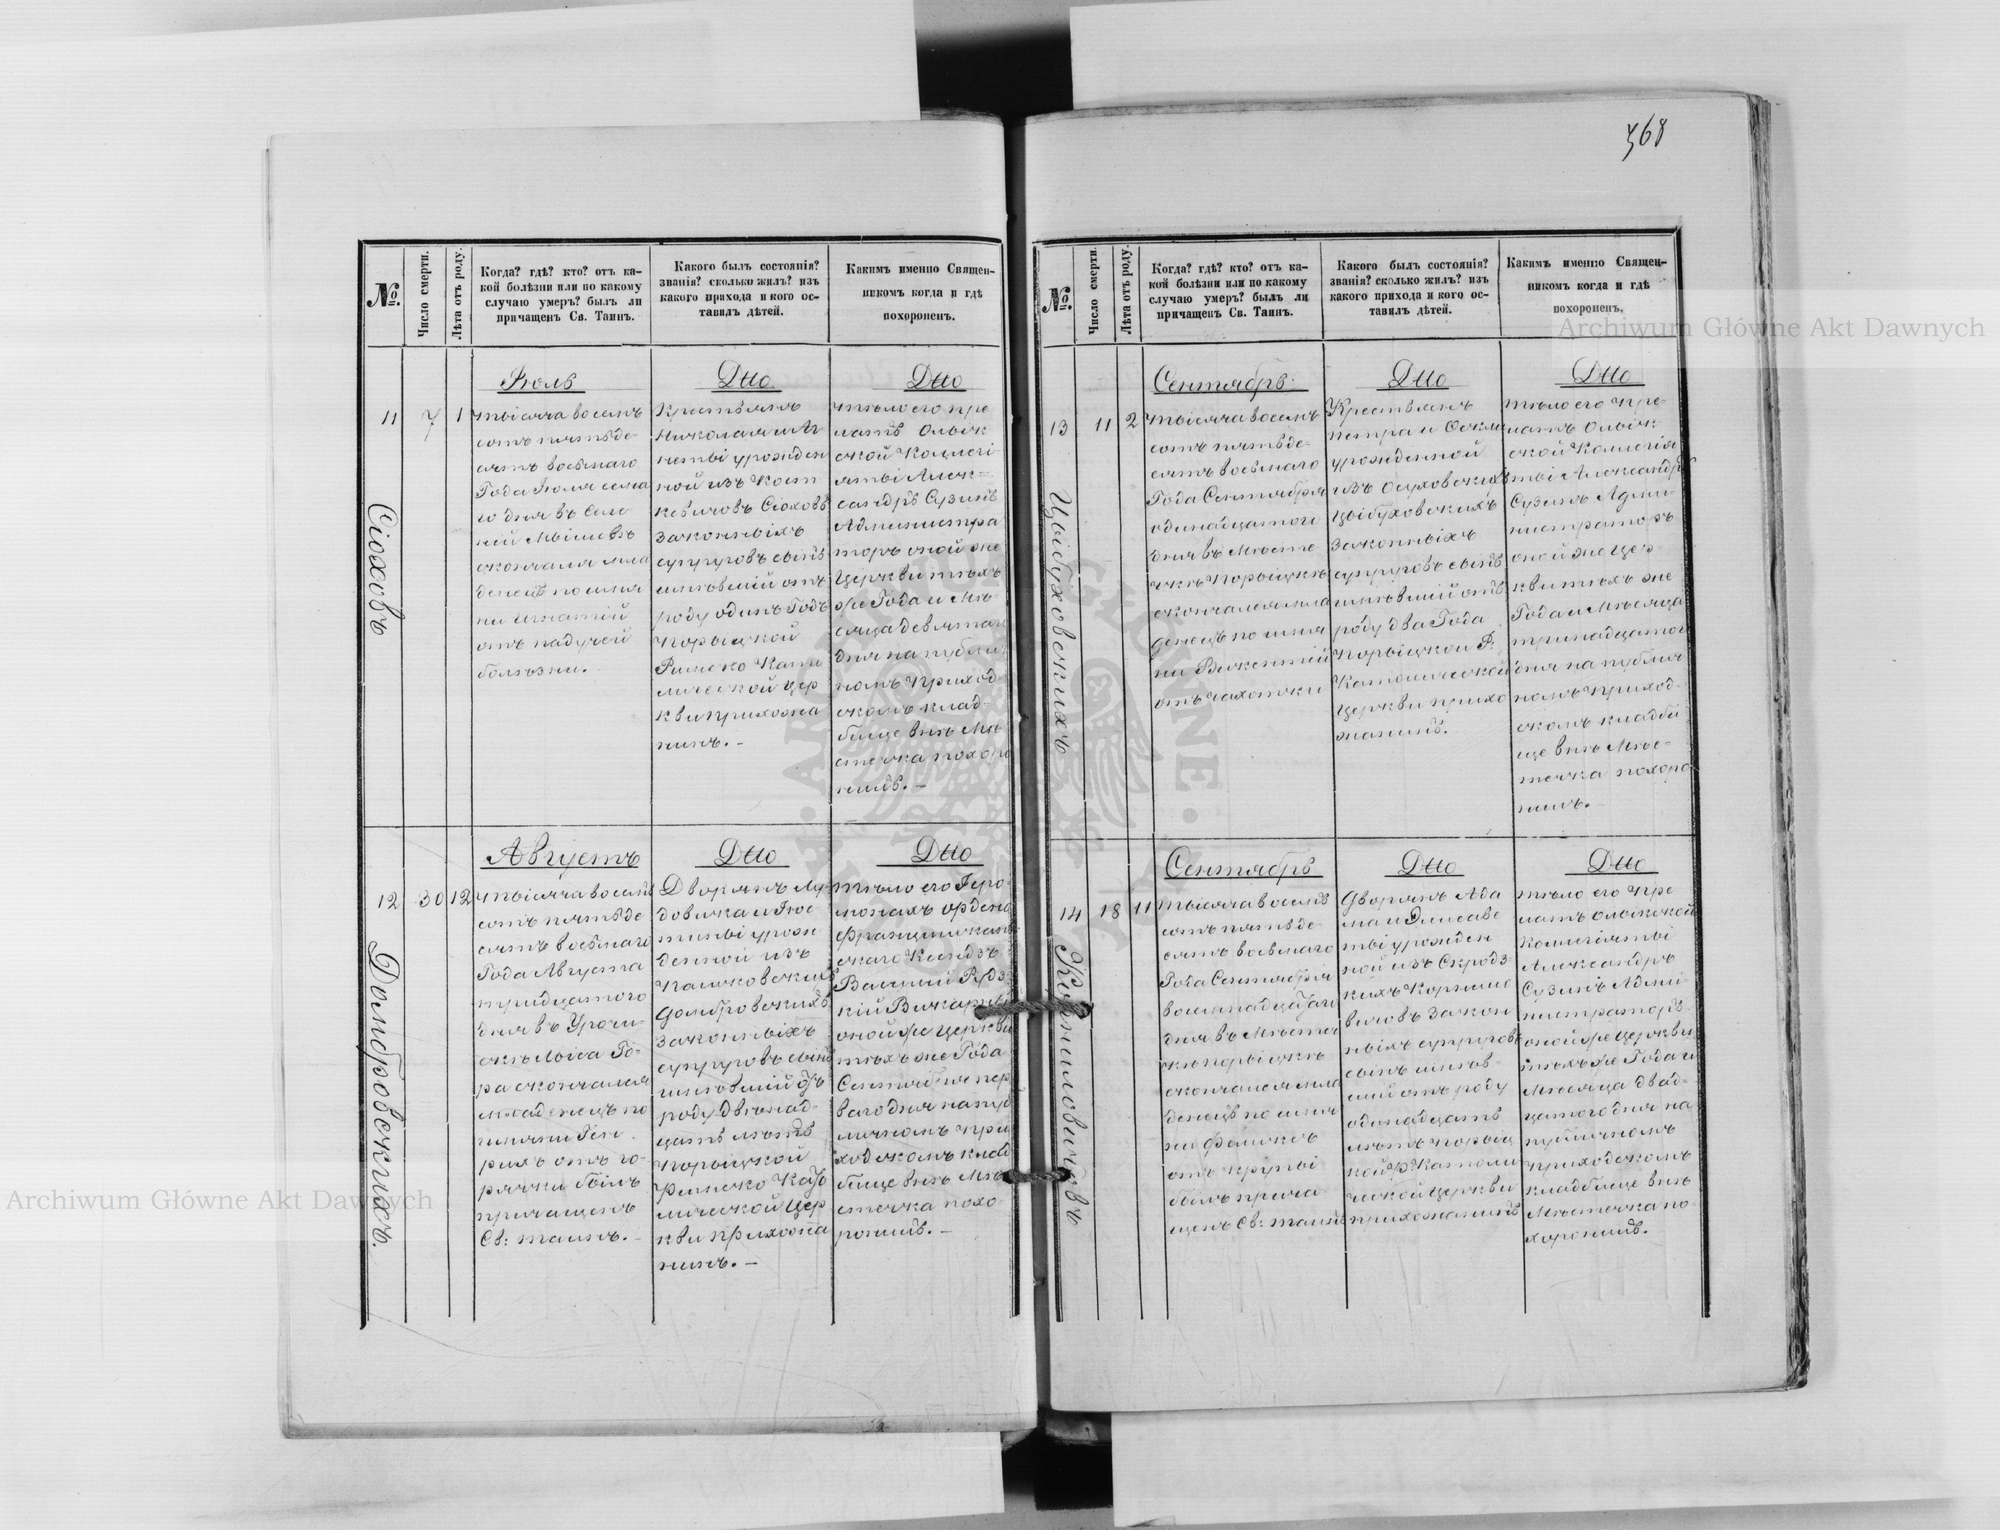 368
№
Число смерти.
Лѣта отъ роду.
Когда? гдѣ? кто? отъ ка-
кой болѣзни или по какому
случаю умеръ? былъ ли
причащенъ Св. Таинъ.
Какого былъ состоянія?
званія? сколько жилъ? изъ
какого прихода и кого ос-
тавилъ дѣтей.
Какимъ именно Священ-
никомъ когда и гдѣ
похороненъ.
11
7
1
Сіоховъ
Іюль
тысяча восемь
сотъ пятьде
сятъ восьмаго
Года Іюля седма
го дня въ Селе
ніи
скончался мла
денецъ по имя
ни Игнатій
отъ падучей
болѣзни.
Dtto
Крестьянъ
Николая и Аг
неты урожден
ной изъ Кост
кевичовъ Сіоховъ
законныхъ
супруговъ сынъ
имѣвшій отъ
роду одинъ Годъ
Порыцкой
Римско Като
лической Цер
кви прихожа
нинъ. –
Dtto
тѣло его Пре
латъ Олыцк
ской Коллегі
яты Алек=
сандръ Сузинъ
Администра
торъ оной же
Церкви тѣхъ
же Года и Мѣ-
сяца девятаго
дня на публи
номъ приход-
скомъ клад-
бище внѣ Мѣ
стечка похоро
нилъ. –
12
30
12
Домбровскихъ.
Августъ
тысяча восемь
сотъ пятьде
сятъ восьмаго
Года Августа
тридцатого
дня въ Урочи
скѣ Лыса Го-
ра скончался
младенецъ по
имяни Ген
рихъ отъ го-
рячки былъ
причащенъ
Св: таинъ. –
Dtto
Дворянъ Лю
довика и Іюс
тины урож
денной изъ
Домбровскихъ
законныхъ
супруговъ сынъ
имѣвшій отъ
роду двѣнад-
цать лѣтъ
Порыцкой
Римско Като
лической Цер
кви прихожа
нинъ. –
Dtto
тѣло его Іеро
монахъ ордена
Францишкан
скаго Ксіндзъ
кій Викарій
оной же Церкви
тѣхъ же Года
Сентября пер
ваго дня на пуб
личномъ при
ходскомъ клад
бище внѣ Мѣ
стечка похо
ронилъ. –
№
Число смерти.
Лѣта отъ роду.
Когда? гдѣ? кто? отъ ка-
кой болѣзни или по какому
случаю умеръ? былъ ли
причащенъ Св. Таинъ.
Какого былъ состоянія?
званія? сколько жилъ? изъ
какого прихода и кого ос-
тавилъ дѣтей.
Какимъ именно Священ-
никомъ когда и гдѣ
похороненъ.
13
11
2
Цыбуховскихъ
Сентябрь
тысяча восемь
сотъ пятьде-
сятъ восьмаго
Года Сентября
одинадцатого
дня въ Мѣсте
чкѣ Порыцкѣ
скончался мла
денецъ по имя
ни Викентій
отъ чахотки
Dtto
Крестьянъ
Петра и
урожденной
изъ Осуховскихъ
Цыбуховскихъ
законныхъ
супруговъ сынъ
имѣвшій отъ
роду два Года
Порыцкой Р.
Католической
Церкви прихо
жанинъ.
Dtto
тѣло его Пре-
латъ Олыцк-
ской Коллегія
ты Александръ
Сузинъ Адми
нистраторъ
оной же Цер-
кви тѣхъ же
Года и Мѣсяца
тринадцатого
дня на публич
номъ приход-
скомъ кладби
ще внѣ Мѣс-
течка похоро
нилъ.
14
18
11
Корниловичовъ
Сентябрь
тысяча восемь
сотъ пятьде
сятъ восьмаго
Года Сентября
восемнадцатаго
дня въ Мѣстеч
кѣ Порыцкѣ
скончался мла
денецъ по имя
ни Феликсъ
отъ крупы
былъ прича
щенъ Св: таинъ
Dtto
Дворянъ Ада
ма и Элисаве
ты урожден
ной изъ Скродз
кихъ Корнило
вичовъ закон
ныхъ супруговъ
сынъ имѣв-
шій отъ роду
одинадцать
лѣтъ Порыц
кой Р. Католи
ческой Церкви
прихожанинъ
Dtto
тѣло его Пре
латъ Олыцкской
Коллегіяты
Александръ
Сузинъ Адми-
нистраторъ
оной же Церкви
тѣхъ же Года и
Мѣсяца двад-
цатого дня на
публичномъ
приходскомъ
кладбище внѣ
Мѣстечка по-
хоронилъ.
Archiwum Główne Akt Dawnych
Archiwum Główne Akt Dawnych